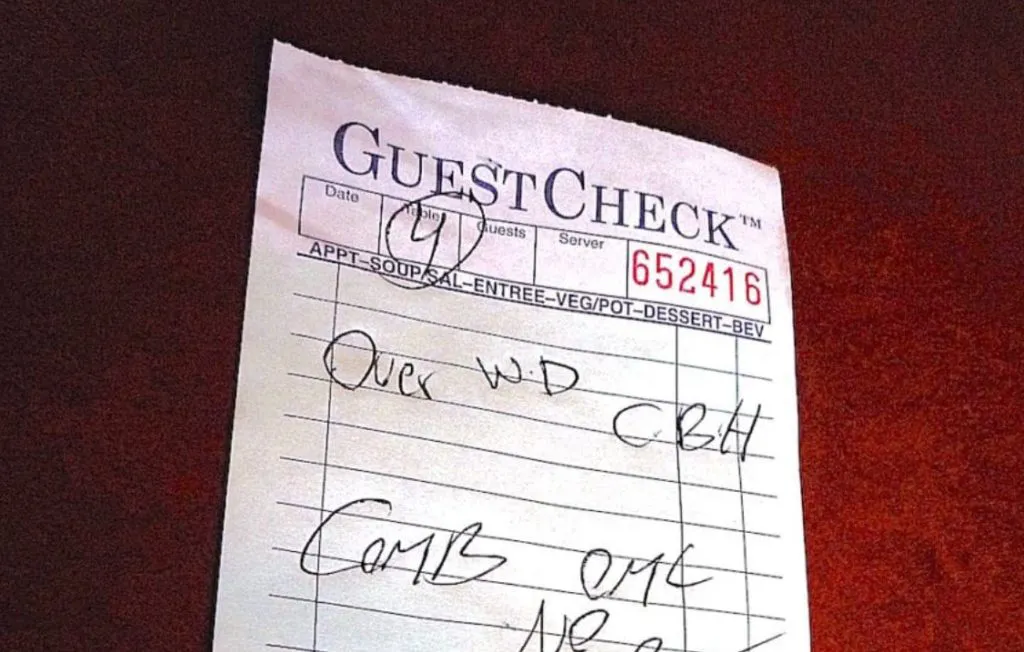 GUESTCHECK™
Date Table Guests Server 652416
APPT–SOUP/SAL–ENTREE–VEG/POT–DESSERT–BEV
4
Over W.D
CBH
COMB OML